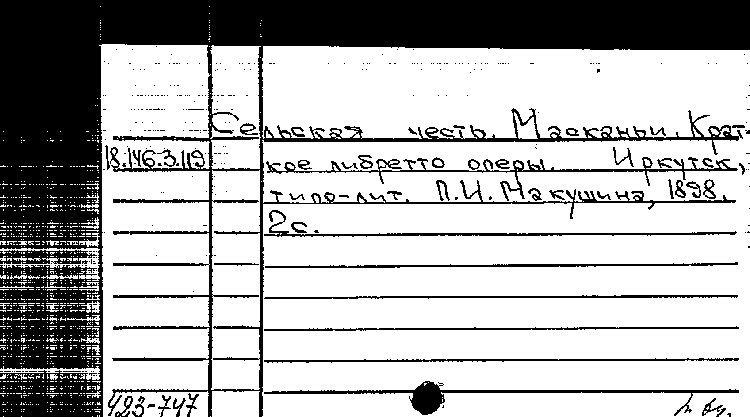 Сельская честь. Масканьи. Крат-
18.146.3.119 кое либретто оперы. Иркутск,
типо-лит. П.И. Макушина, 1898.
2с.
423-747